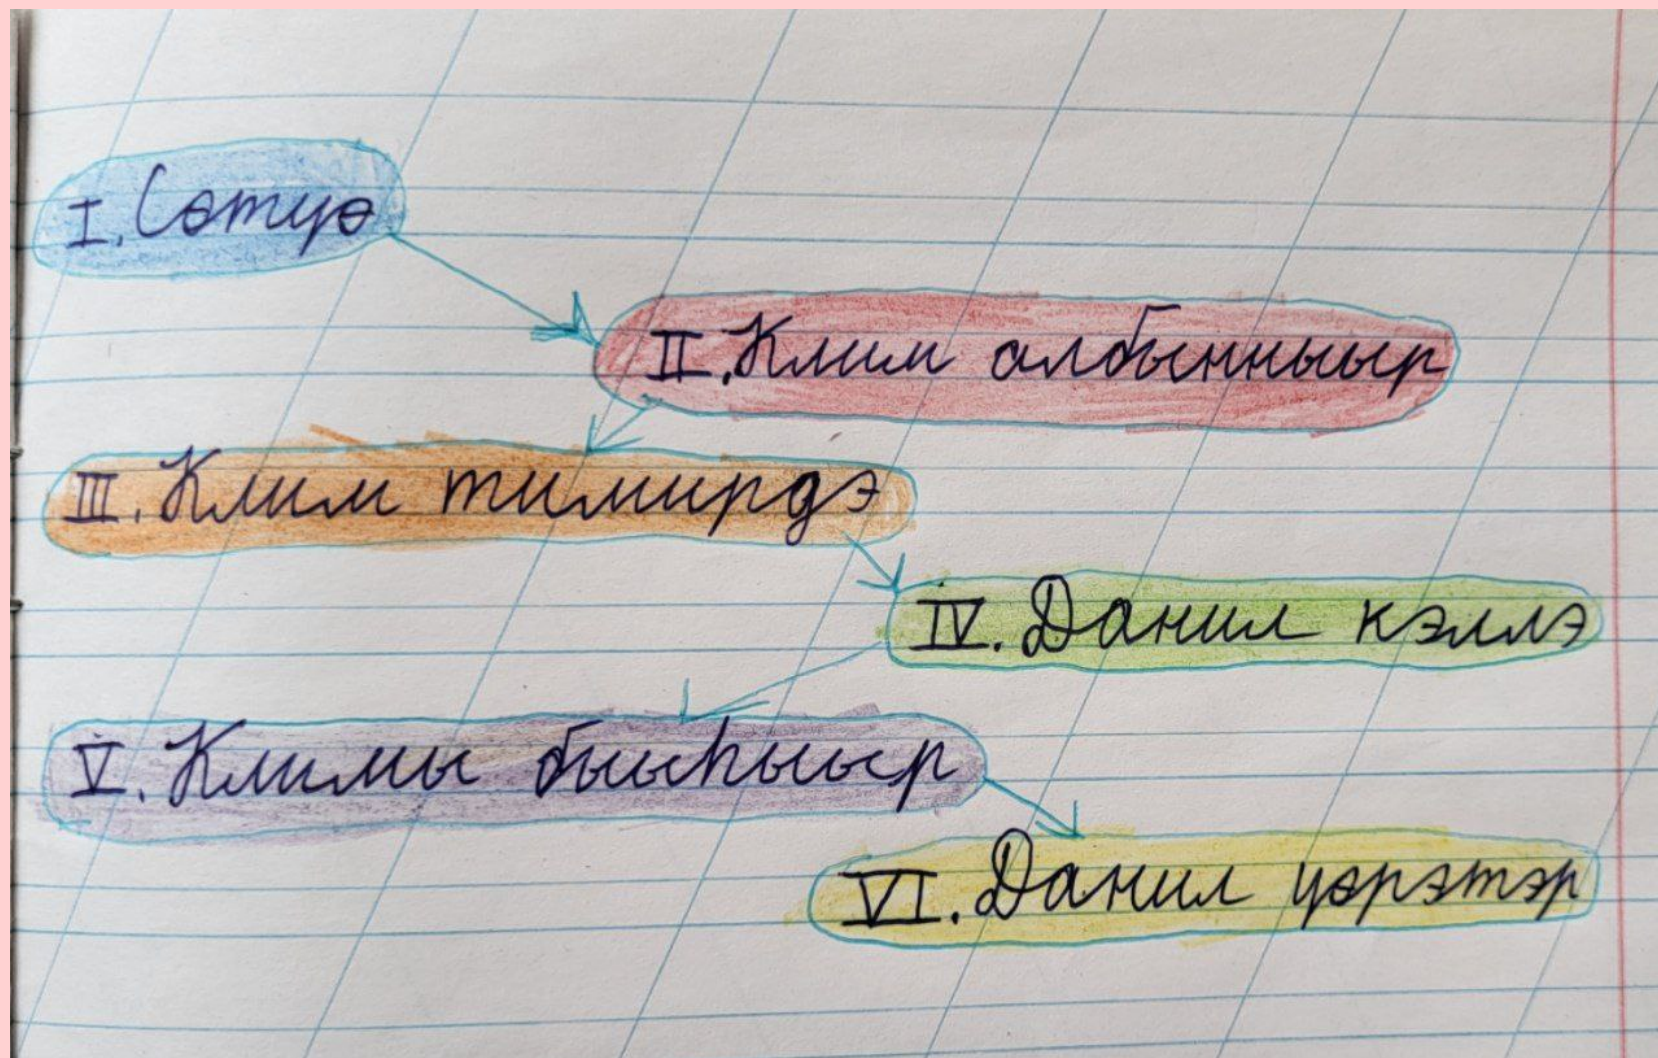 I. Сөтүө
II. Клим албынныыр
III. Клим тимирдэ
IV. Данил кэллэ
V. Климы быыһыыр
VI. Данил үөрэтэр